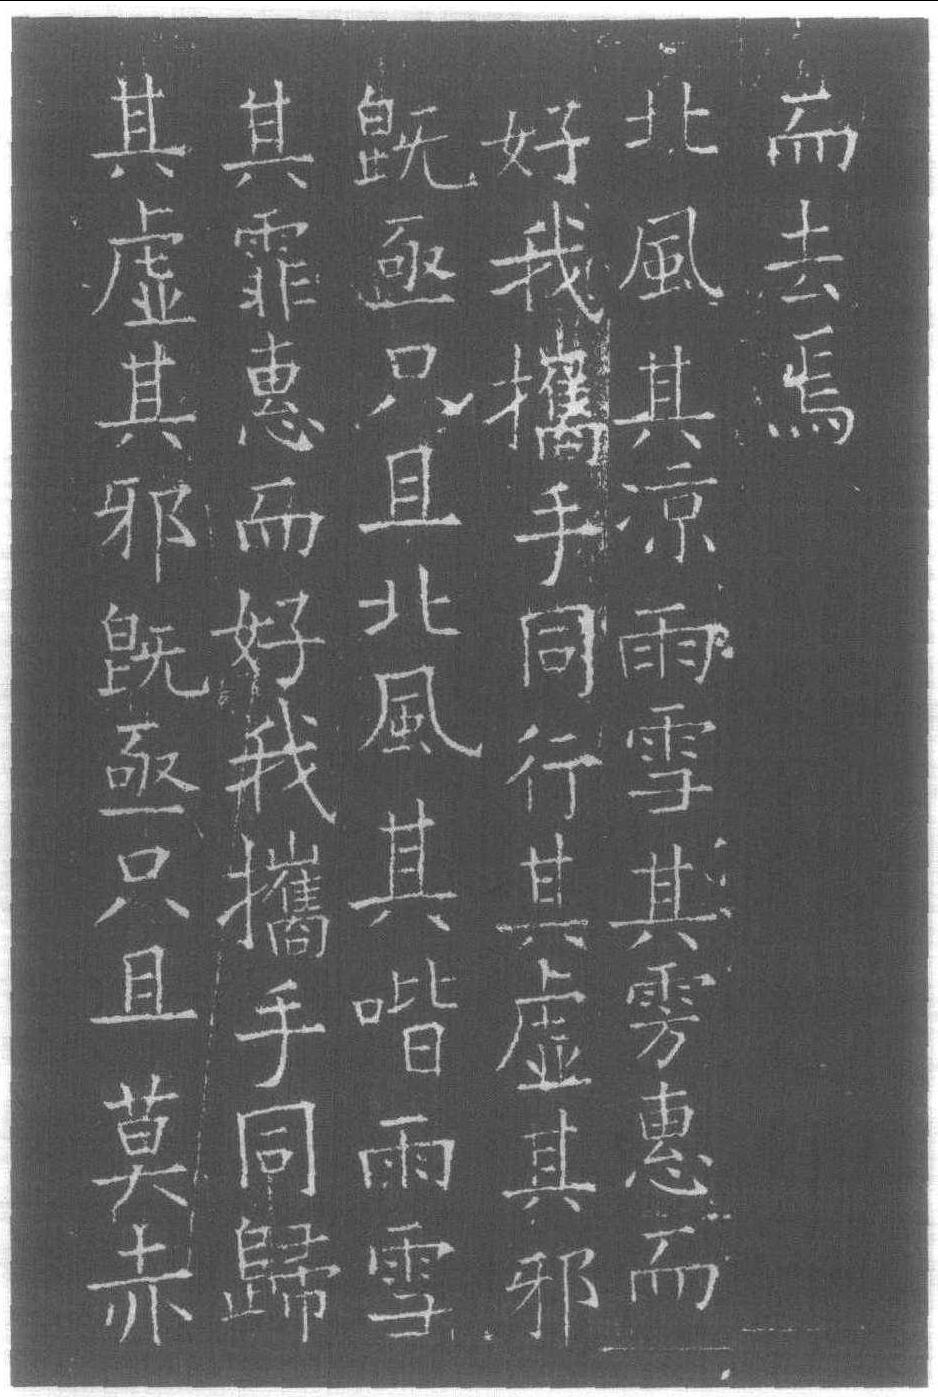 而去焉
北風其凉雨雪其雱惠而
好我攜手同行其虛其邪
既亟只且北風其喈雨雪
其霏惠而好我攜手同歸
其虛其邪既亟只且莫赤